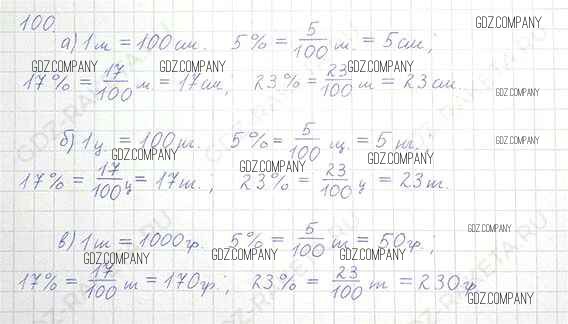 100.
а) 1 м = 100 см. 5% = 5/100 м. = 5 см;
17% = 17/100 м. = 17 см; 23% = 23/100 м = 23 см.
б) 1 ц. = 100 кг. 5% = 5/100 ц. = 5 кг.,
17% = 17/100 ц = 17 т., 23% = 23/100 ц = 23 т.
в) 1 т = 1000 гр. 5% = 5/100 т = 50 гр;
17% = 17/100 т = 170 гр; 23% = 23/100 т = 230 гр
GDZ.COMPANY
GDZ.COMPANY
GDZ.COMPANY
GDZ.COMPANY
GDZ.COMPANY
GDZ.COMPANY
GDZ.COMPANY
GDZ.COMPANY
GDZ.COMPANY
GDZ.COMPANY
GDZ.COMPANY
GDZ.COMPANY
GDZ.COMPANY
GDZ.COMPANY